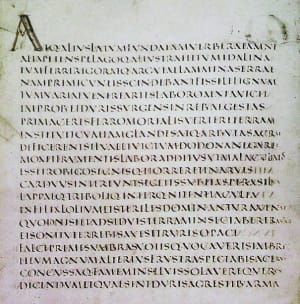 ATQALIVSLATVMFVNDAIAMVERBERATAMNE
ALTAPETENSPELAGOQALIVSTRAHITVMIDALINA
TVMFERRIRIGORATQARGVTAELAMMINASERRAE
NAMPRIMICVNEISSCINDEBANTFISSILELIGNVM
TVMVARIAEVENEREARTESLABOROMNIAVICIT
IMPROBETDVRISVRGENSINREBVSEGESTAS
PRIMACERESFERROMORTALISVERTERETERRAM
INSTITVITCVMIAMGLANDESATQARBVTASACRAE
DEFICERENTSILVAEETVICTVMDODONANEGARET
MOXETFRVMENTISLABORADDITVSVTMALACVLMOS
ESSETROBIGOSEGNISQHORRERETINARVIS
CARDVVSINTEREVNTSEGETESSVBITASPERASILVA
LAPPAEQTRIBOLIQINTERQNITENTIACVLTA
INFELIXLOLIVMETSTERILESDOMINANTVRAVENAE
QVODNISIETADSIDVISTERRAMINSECTABERERASTRIS
ETSONITVTERREBISAVISETRVRISOPACI
FALCEPREMESVMBRASVOTISQVOCAVERISIMBREM
HEVMAGNVMALTERIVSFRVSTRASPECTABISACERVOM
CONCVSSAQFAMEMINSILVISSOLAVEREQVERCV
DICENDVMETQVAESINTDVRISAGRESTIBARMA